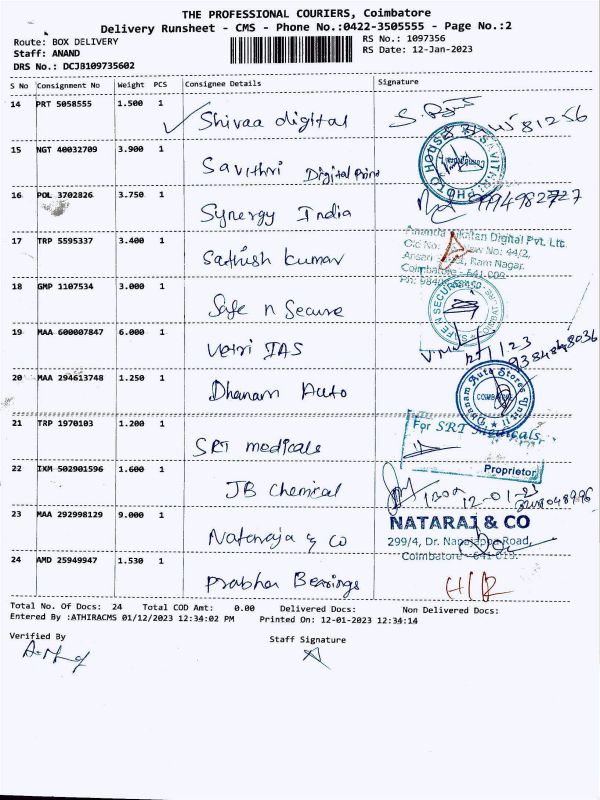 THE PROFESSIONAL COURIERS, Coimbatore
Delivery Runsheet - CMS - Phone No.:0422-3505555 - Page No.:2
Route: BOX DELIVERY
RS No.: 1097356
Staff: ANAND
RS Date: 12-Jan-2023
DRS No.: DCJB109735602
S No Consignment No Weight PCS Consignee Details Signature
14 PRT 5058555 1.500 1 Shivaa digital
81256
15 NGT 40032709 3.900 1 Savithri Digital Print
SAVITHRI PHOTO HOUSE
16 POL 3702826 3.750 1 Synergy India
9994982727
17 TRP 5595337 3.400 1 Sathish kumar
Digital Pvt. Ltd.
New No: 44/2,
Ram Nagar,
Coimbatore - 641 009
18 GMP 1107534 3.000 1 Safe n Secure
19 MAA 600007847 6.000 1 Vetri IAS
20 MAA 294613748 1.250 1 Dhanam Auto
Dhanam Auto Stores Unit II
COIMBATORE
21 TRP 1970103 1.200 1 SRT medicals
For SRT Medicals,
Proprietor
22 IXM 502901596 1.600 1 JB Chemical
12-01-23
23 MAA 292998129 9.000 1 Nataraja & Co
NATARAJ & CO
299/4, Dr. Nanjappa Road,
Coimbatore - 641 018.
24 AMD 25949947 1.530 1 Prabhar Bearings
Total No. Of Docs: 24 Total COD Amt: 0.00 Delivered Docs: Non Delivered Docs:
Entered By :ATHIRACMS 01/12/2023 12:34:02 PM Printed On: 12-01-2023 12:34:14
Verified By
Staff Signature